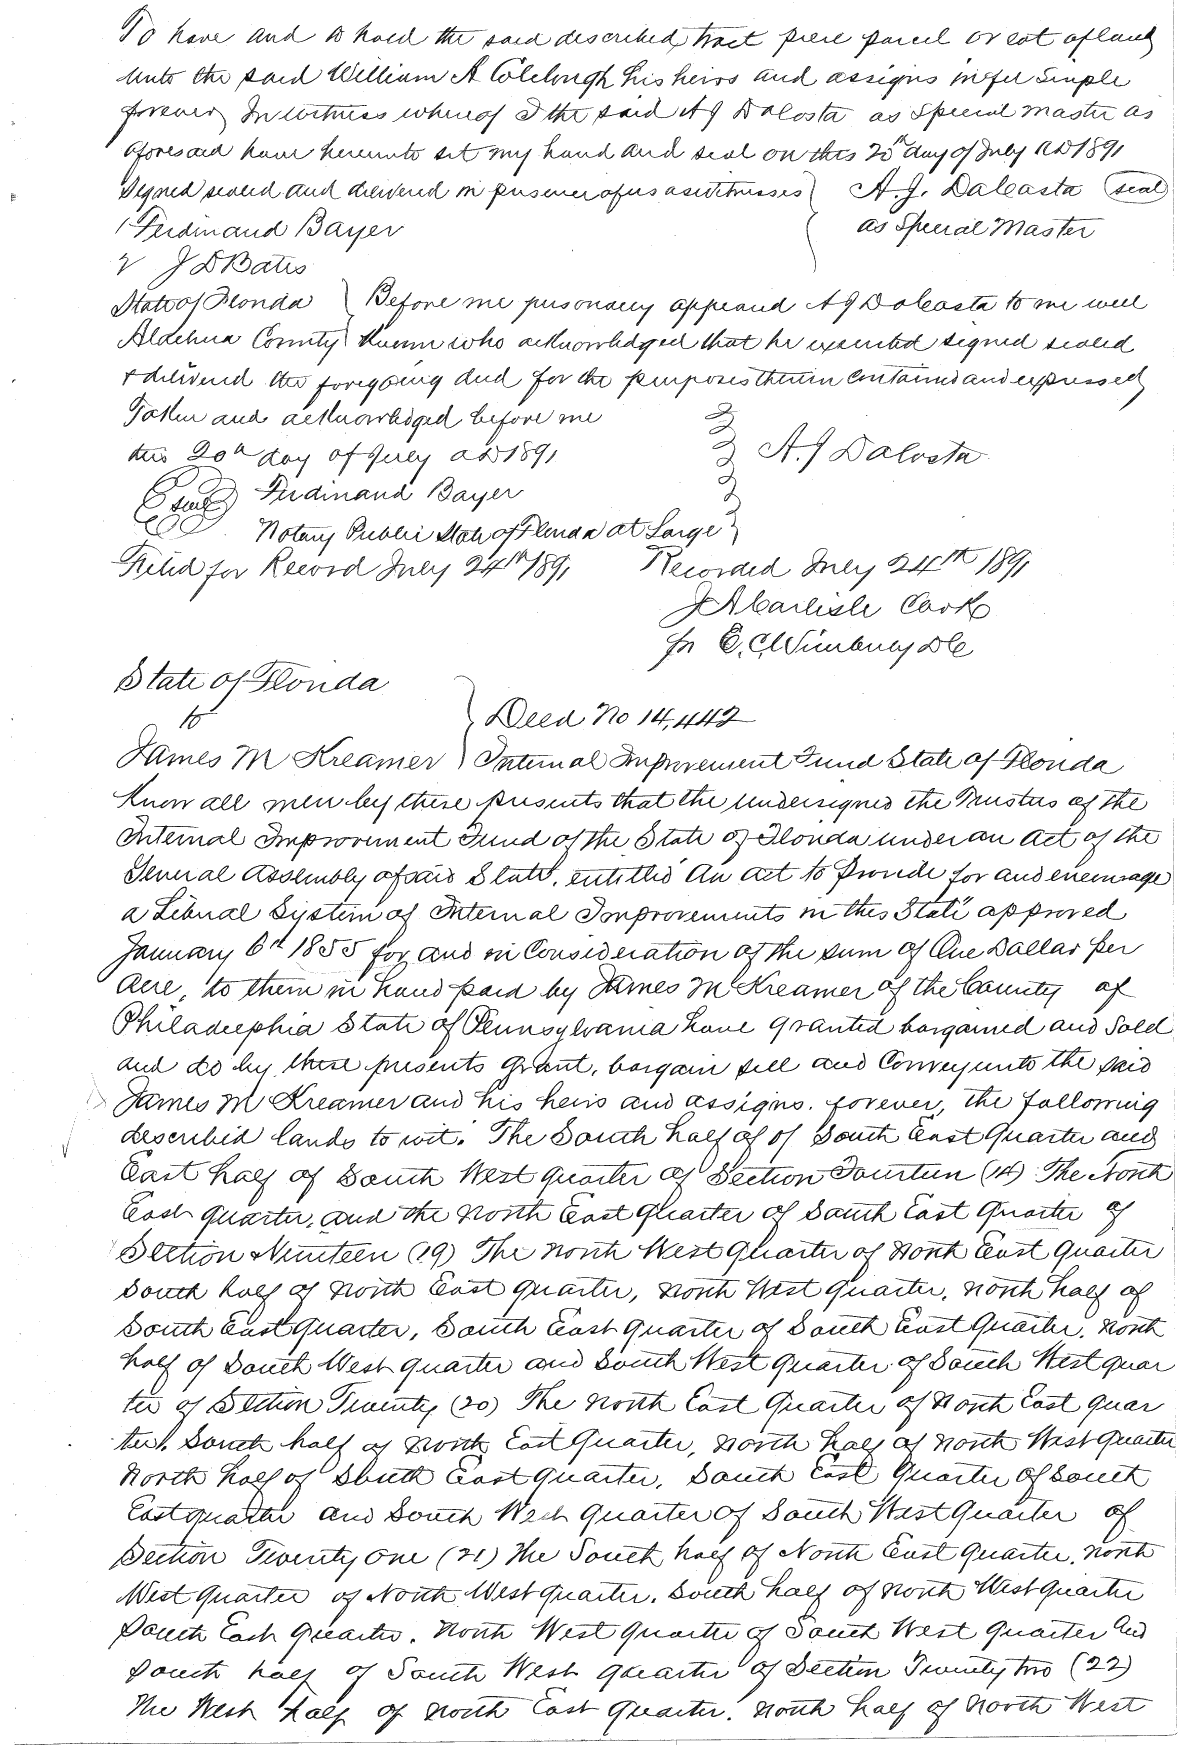 To have and to hold the said described tract piece parcel or lot of land
unto the said William A Colclough his heirs and assigns in fee simple
forever In witness whereof I the said A J DaCosta as Special Master as
aforesaid have hereunto set my hand and seal on this 20th day of July AD 1891
Signed sealed and delivered in presence of us as witnesses A. J. DaCosta (seal)
1 Ferdinand Bayer as Special Master
2 J D Batis
State of Florida Before me personally appeared A J DaCosta to me well
Alachua County known who acknowledged that he executed signed sealed
& delivered the foregoing deed for the purposes therein contained and expressed
Taken and acknowledged before me
this 20th day of July AD 1891 A. J DaCosta
Seal Ferdinand Bayer
Notary Public State of Florida at Large
Filed for Record July 24th 1891 Recorded July 24th 1891
J A Carlisle Clerk
pr E. C. Wimberly DC
State of Florida
to Deed No 14,442
James M Kreamer Internal Improvement Fund State of Florida
Know all men by these presents that the undersigned the Trustees of the
Internal Improvement Fund of the State of Florida under an Act of the
General Assembly of said State, entitled "An act to Provide for and encourage
a Liberal System of Internal Improvements in this State" approved
January 6th 1855 for and in Consideration of the sum of One Dollar per
Acre, to them in hand paid by James M Kreamer of the County of
Philadelphia State of Pennsylvania have granted bargained and Sold
and do by these presents grant, bargain sell and Convey unto the said
James M Kreamer and his heirs and assigns. forever, the following
described lands to wit. The South half of of South East Quarter and
East half of South West quarter of Section Fourteen (14) The North
East quarter, and the North East quarter of South East Quarter of
Section Nineteen (19) The North West Quarter of North East Quarter
South half of North East quarter, North West Quarter, North half of
South East quarter, South East quarter of South East Quarter, North
half of South West quarter and South West quarter of South West quar
ter of Section Twenty (20) The North East Quarter of North East quar
ter, South half of North East Quarter, North half of North West Quarter
North half of South East quarter, South East Quarter of South
East quarter and South West Quarter of South West Quarter of
Section Twenty One (21) The South half of North East Quarter, North
West quarter of North West quarter, South half of North West quarter
South East Quarter, North West quarter of South West Quarter and
South half of South West quarter of Section Twenty two (22)
The West half of North East Quarter, North half of North West